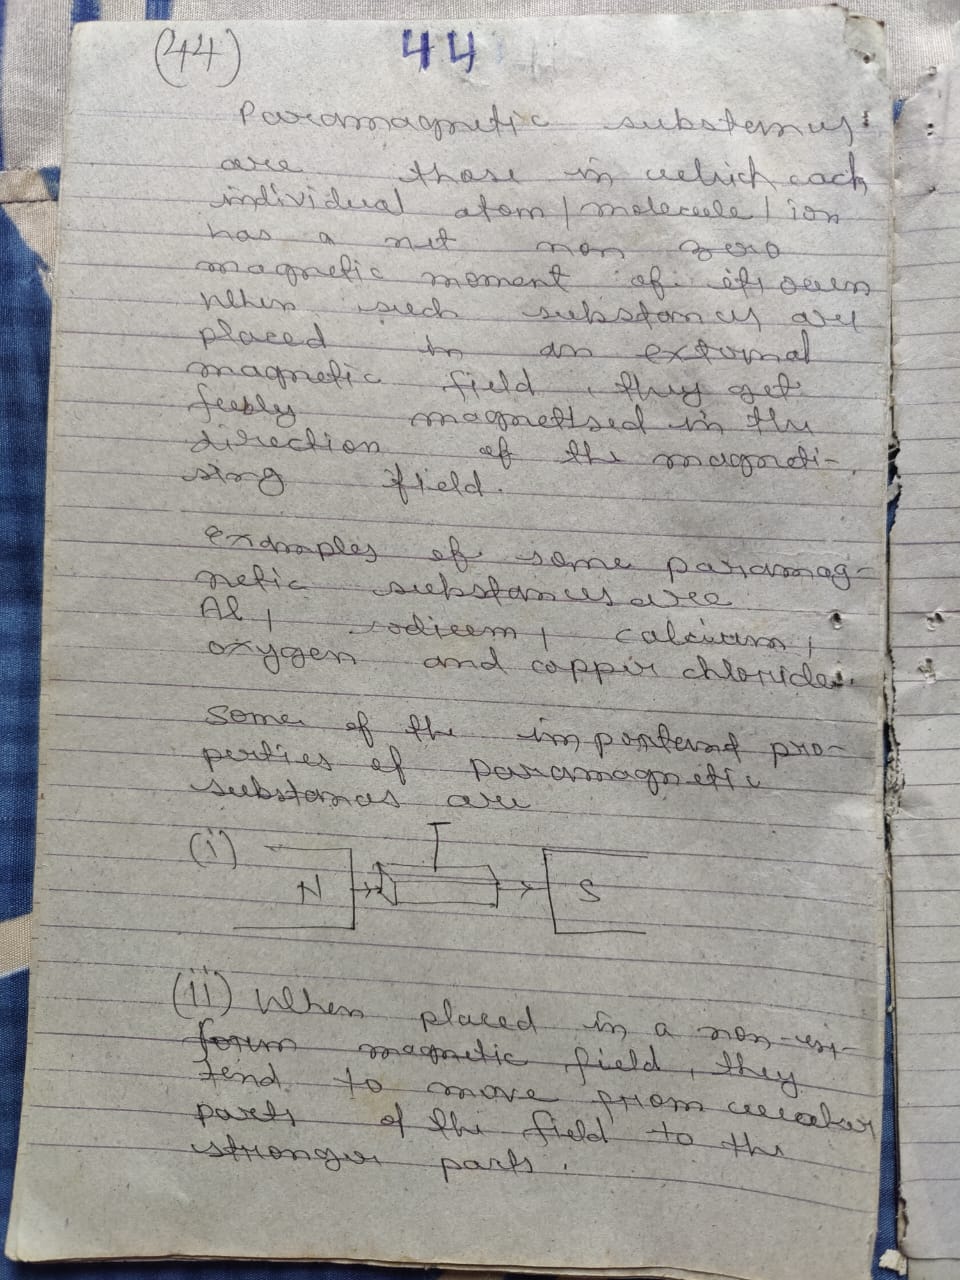 (44) 44
Paramagnetic substances
are those in which each
individual atom/molecule/ion
has a net non zero
magnetic moment of its own
When such substances are
placed in an external
magnetic field, they get
feebly magnetised in the
direction of the magneti-
sing field.
examples of some paramag-
netic substances are
Al, sodium, calcium,
oxygen and copper chloride.
Some of the important pro-
perties of paramagnetic
substances are
(i) N S
(ii) When placed in a non-uni-
form magnetic field, they
tend to move from weaker
parts of the field to the
stronger parts.